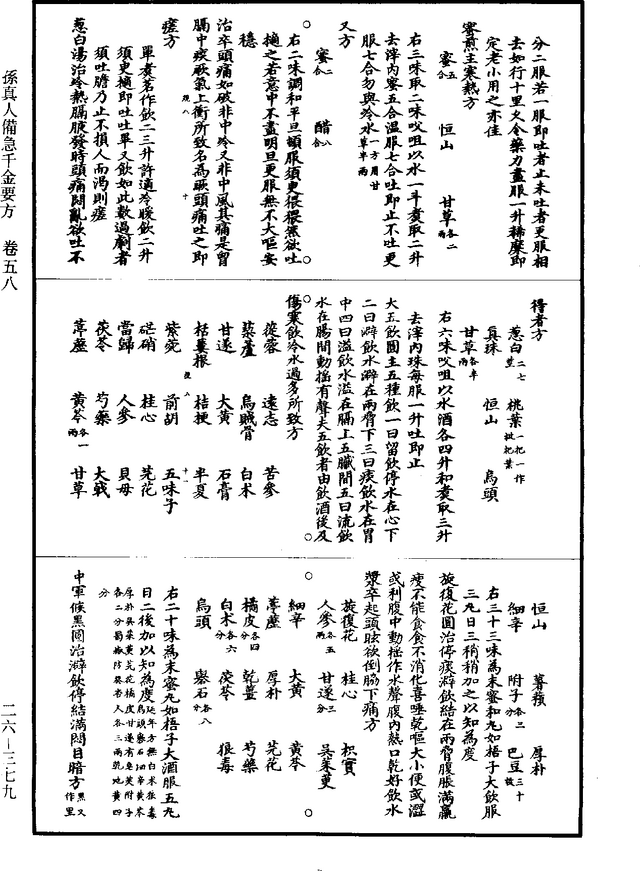 分二服若一服即吐者止未吐者更服相
去如行十里久令藥力盡服一升稀糜即
定老小用之亦佳
蜜煎主寒熱方
蜜五合 恒山 甘草各二兩
右三味取二味㕮咀以水一斗煮取二升
去滓內蜜五合溫服七合吐即止不吐更
服七合勿與冷水一方用甘草半兩
又方
蜜二合 醋八合
右二味調和平旦頓服須臾猥猥然欲吐
擿之若意中不盡明旦更服無不大嘔安
穩
治卒頭痛如破非中冷又非中風其痛是胷
膈中痰厥氣上衝所致名為厥頭痛吐之即
瘥方
單煮茗作飲二三升許適冷暖飲二升
須臾擿即吐吐畢又飲如此數過劇者
須吐膽乃止不損人而渴則瘥
蔥白湯治冷熱膈痰發時頭痛悶亂欲吐不
得者方
蔥白二七莖 桃葉一把一作枇杷葉
真珠 恒山 烏頭
甘草各半兩
右六味㕮咀以水酒各四升和煮取三升
去滓內珠每服一升吐即止
大五飲圓主五種飲一曰留飲停水在心下
二曰澼飲水澼在兩脅下三曰痰飲水在胃
中四曰溢飲水溢在膈上五臟間五曰流飲
水在腸間動搖有聲夫五飲者由飲酒後及
傷寒飲冷水過多所致方
遠志 苦參
藜蘆 烏賊骨 白术
甘遂 大黃 石膏
栝蔞根 桔梗 半夏
紫菀 前胡 五味子
硭硝 桂心 芫花
當歸 人參 貝母
茯苓 芍藥 大戟
葶藶 黃芩各一兩 甘草
恒山 薯蕷 厚朴
細辛 附子各三分 巴豆三十枚
右三十三味為末蜜和丸如梧子大飲服
三丸日三稍稍加之以知為度
旋復花圓治停痰澼飲結在兩脅腹脹滿羸
瘦不能食食不消化喜唾乾嘔大小便或澀
或利腹中動搖作水聲腹內熱口乾好飲水
漿卒起頭眩欲倒脇下痛方
旋復花 桂心 枳實
人參各五兩 甘遂三分 吳茱萸
細辛 大黃 黃芩
葶藶 厚朴 芫花
橘皮各四分 乾薑 芍藥
白术各六分 茯苓 狼毒
烏頭 礜石各八分
右二十味為末蜜丸如梧子大酒服五丸
日二後加以知為度
中軍候黑圓治澼飲停結滿悶目暗方
孫真人備急千金要方 卷五八
二六—三七九